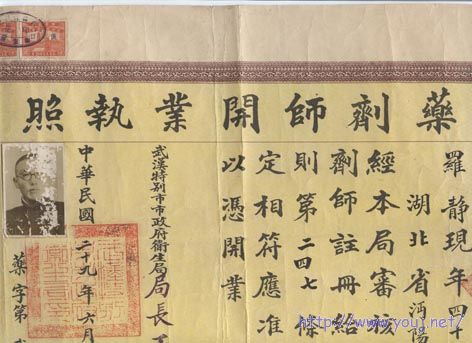 藥劑師開業執照
羅靜現年四十
湖北省沔陽
經本局審核
劑師註冊給
則第二四七條
定相符應准
以憑開業
武漢特別市市政府衛生局局長
中華民國二十九年六月
藥字第
http://www.youj.net/